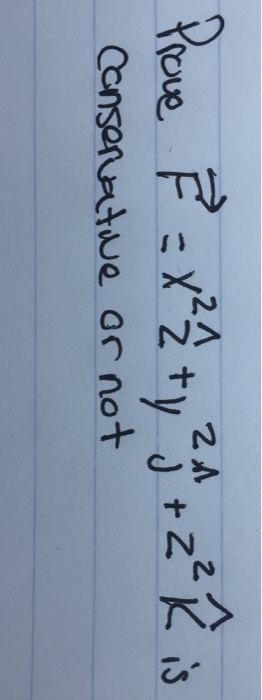 Prove F⃗ = x² î + y² ĵ + z² k̂ is
conservative or not